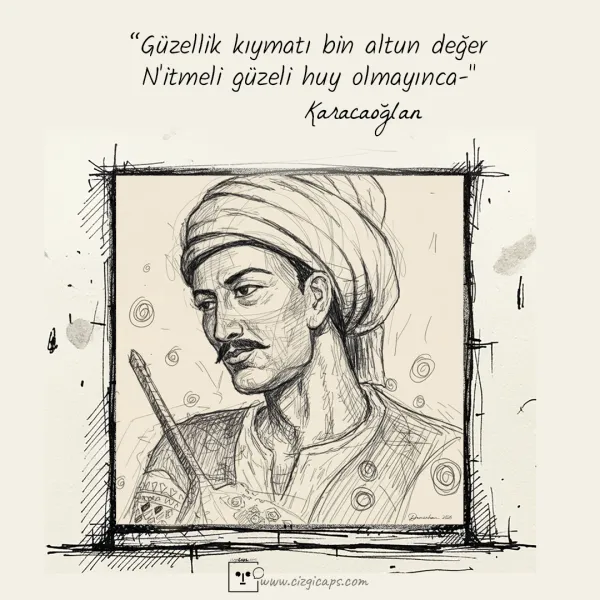 “Güzellik kıymatı bin altun değer
N'itmeli güzeli huy olmayınca-"
Karacaoğlan
www.cizgicaps.com